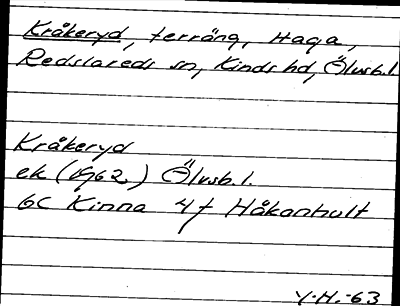 Kråkeryd, terräng, Haga,
Redslareds sn, Kinds hd, Älvsb.l.
Kråkeryd
ek (1962) Älvsb.l.
6C Kinna 4f Håkanhult
Y.H.-63